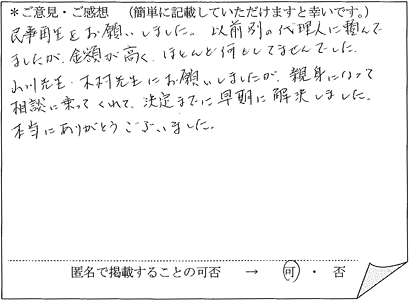 *ご意見・ご感想 （簡単に記載していただけますと幸いです。）
民事再生をお願いしました。以前別の代理人に頼んで
ましたが、金額が高く、ほとんど何もしてませんでした。
山川先生・木村先生にお願いしましたが、親身になって
相談に乗ってくれて、決定までに早期に解決しました。
本当にありがとうございました。
匿名で掲載することの可否 → 可 ・ 否